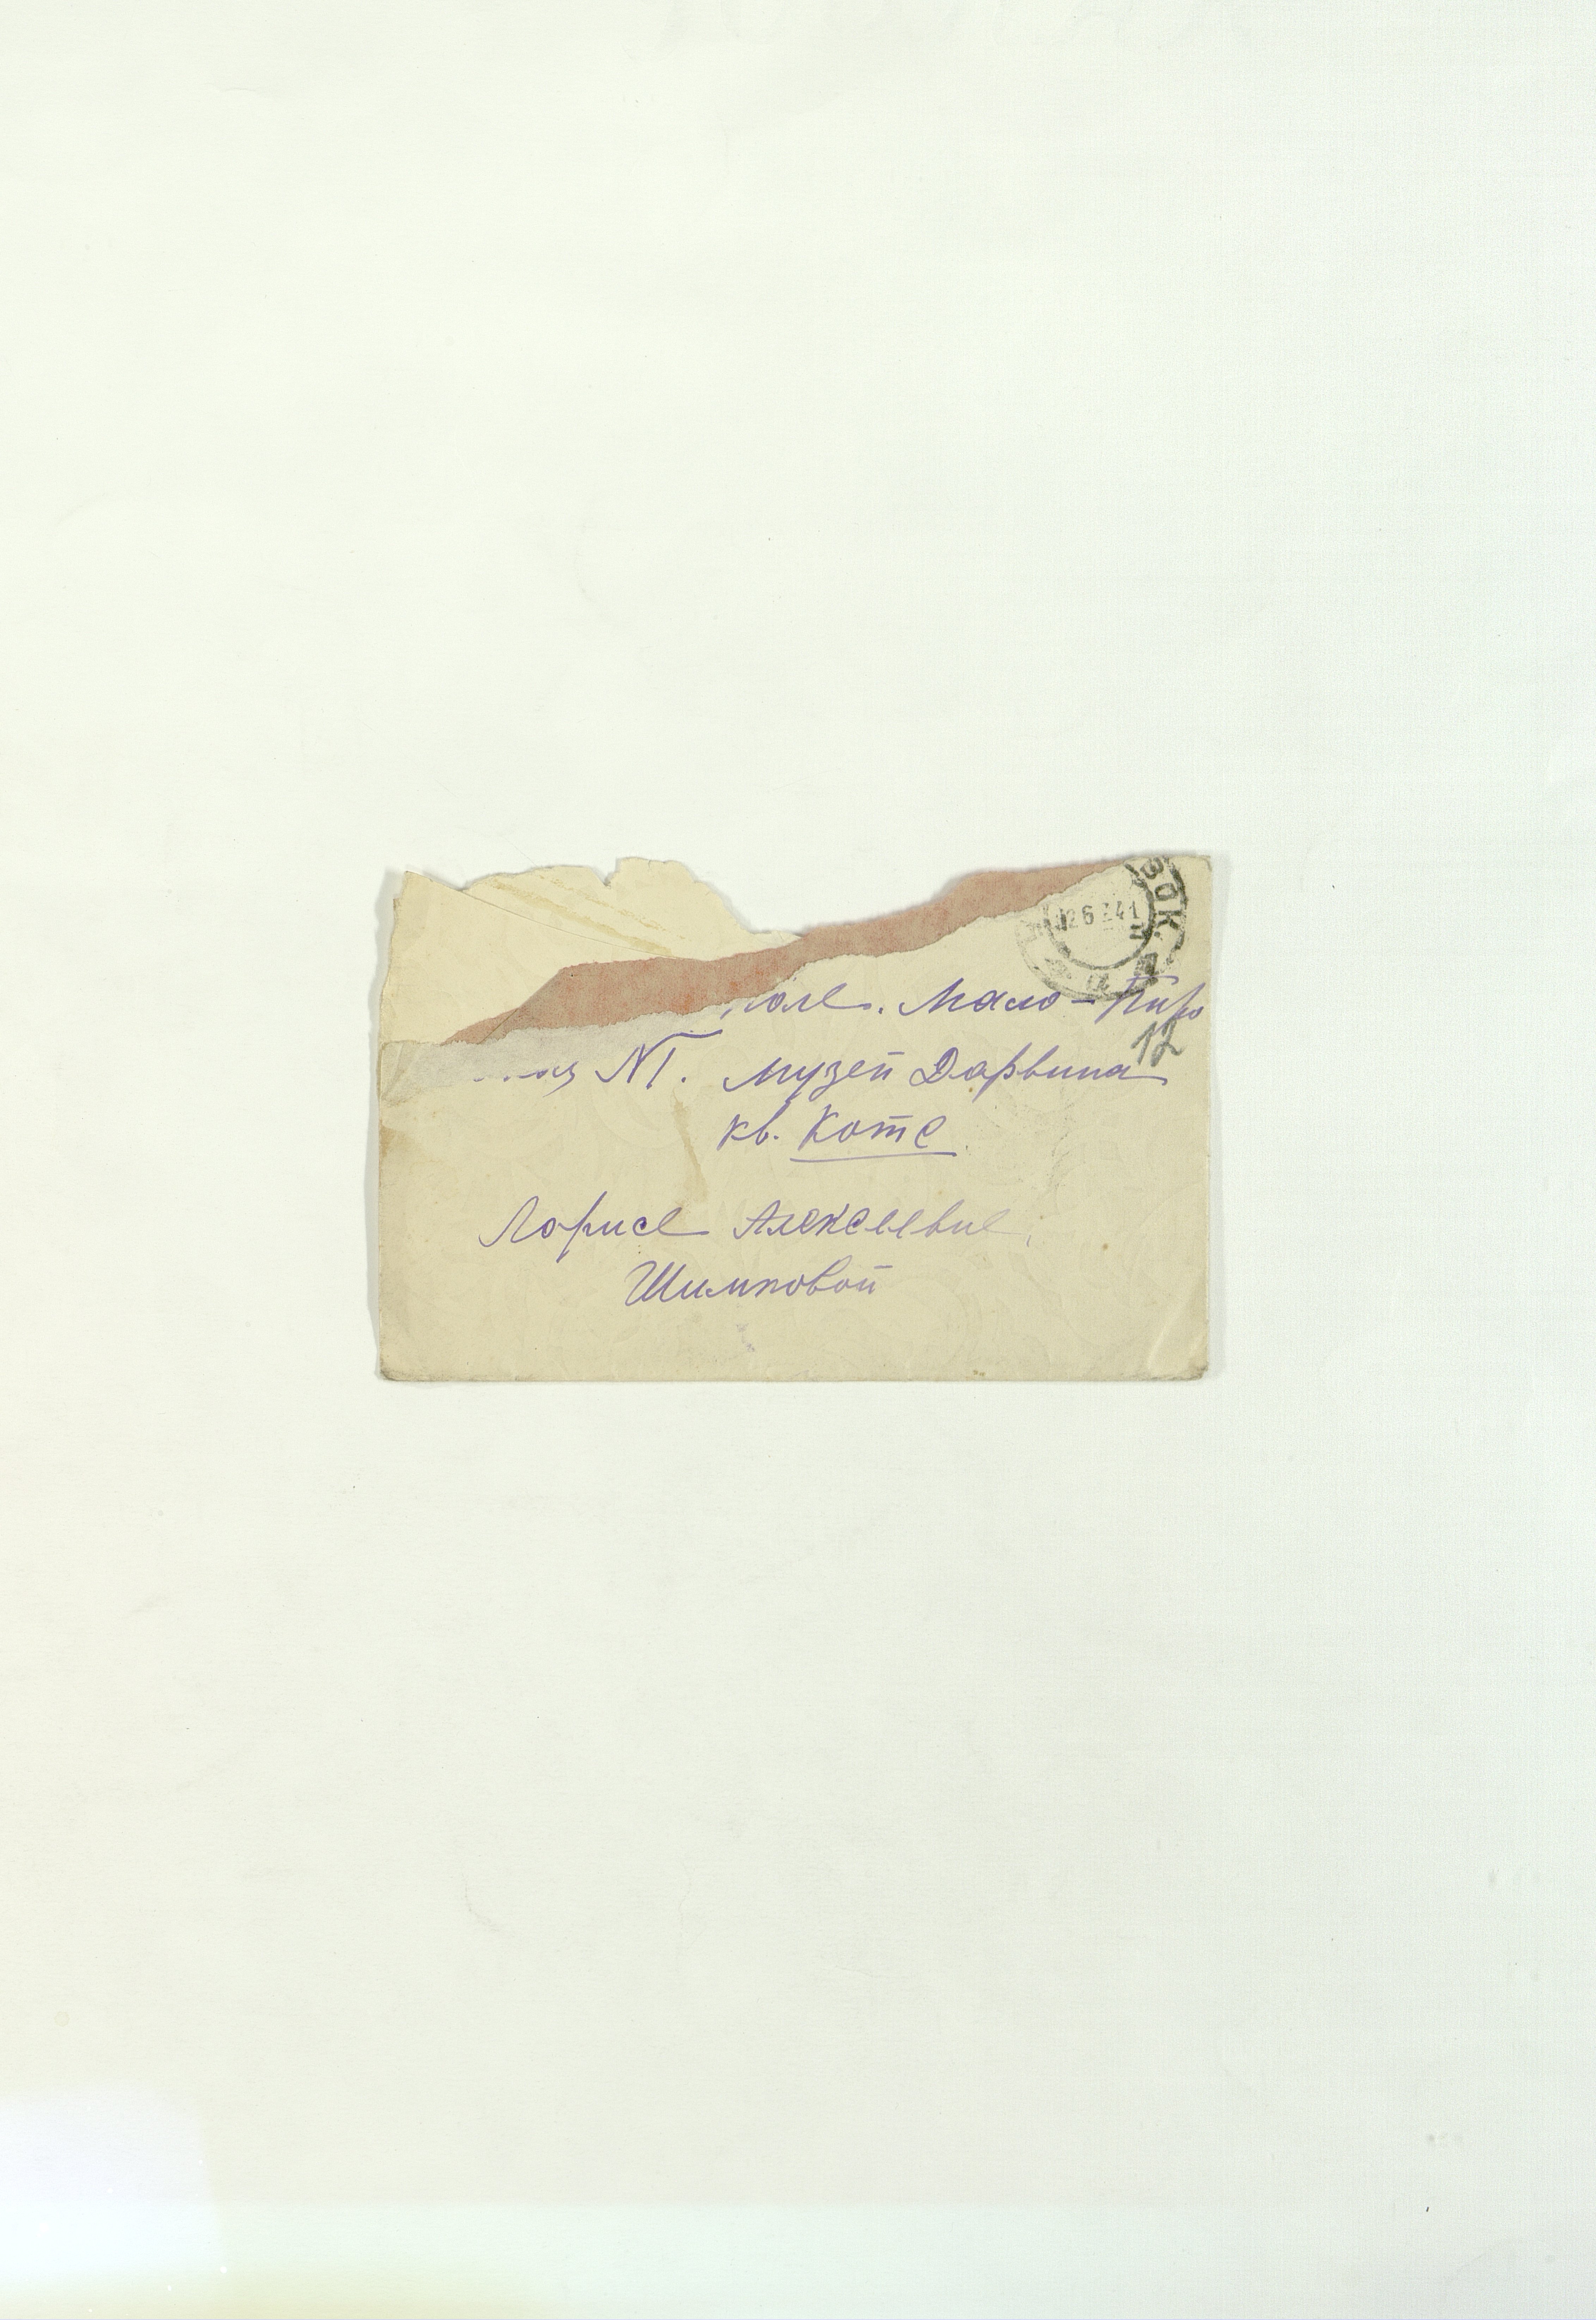 ВОК.
26 41
поле. Мало-Пиро
12
№1. музей Дарвина
кв. Коте
Ларисе Алексеевне
Шимковой